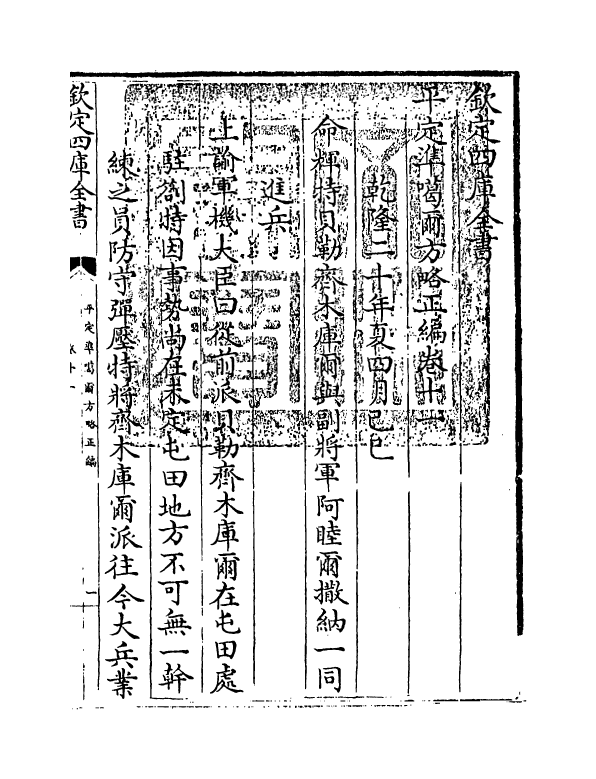 欽定四庫全書
平定準噶爾方略正編卷十一
乾隆二十年夏四月己巳
命輝特貝勒齊木庫爾與副將軍阿睦爾撒納一同
進兵
上諭軍機大臣曰從前派貝勒齊木庫爾在屯田處
駐劄特因事勢尚在未定屯田地方不可無一幹
練之員防守彈壓特將齊木庫爾派往今大兵業
欽定四庫全書
平定準噶爾方略正編
卷十一
一